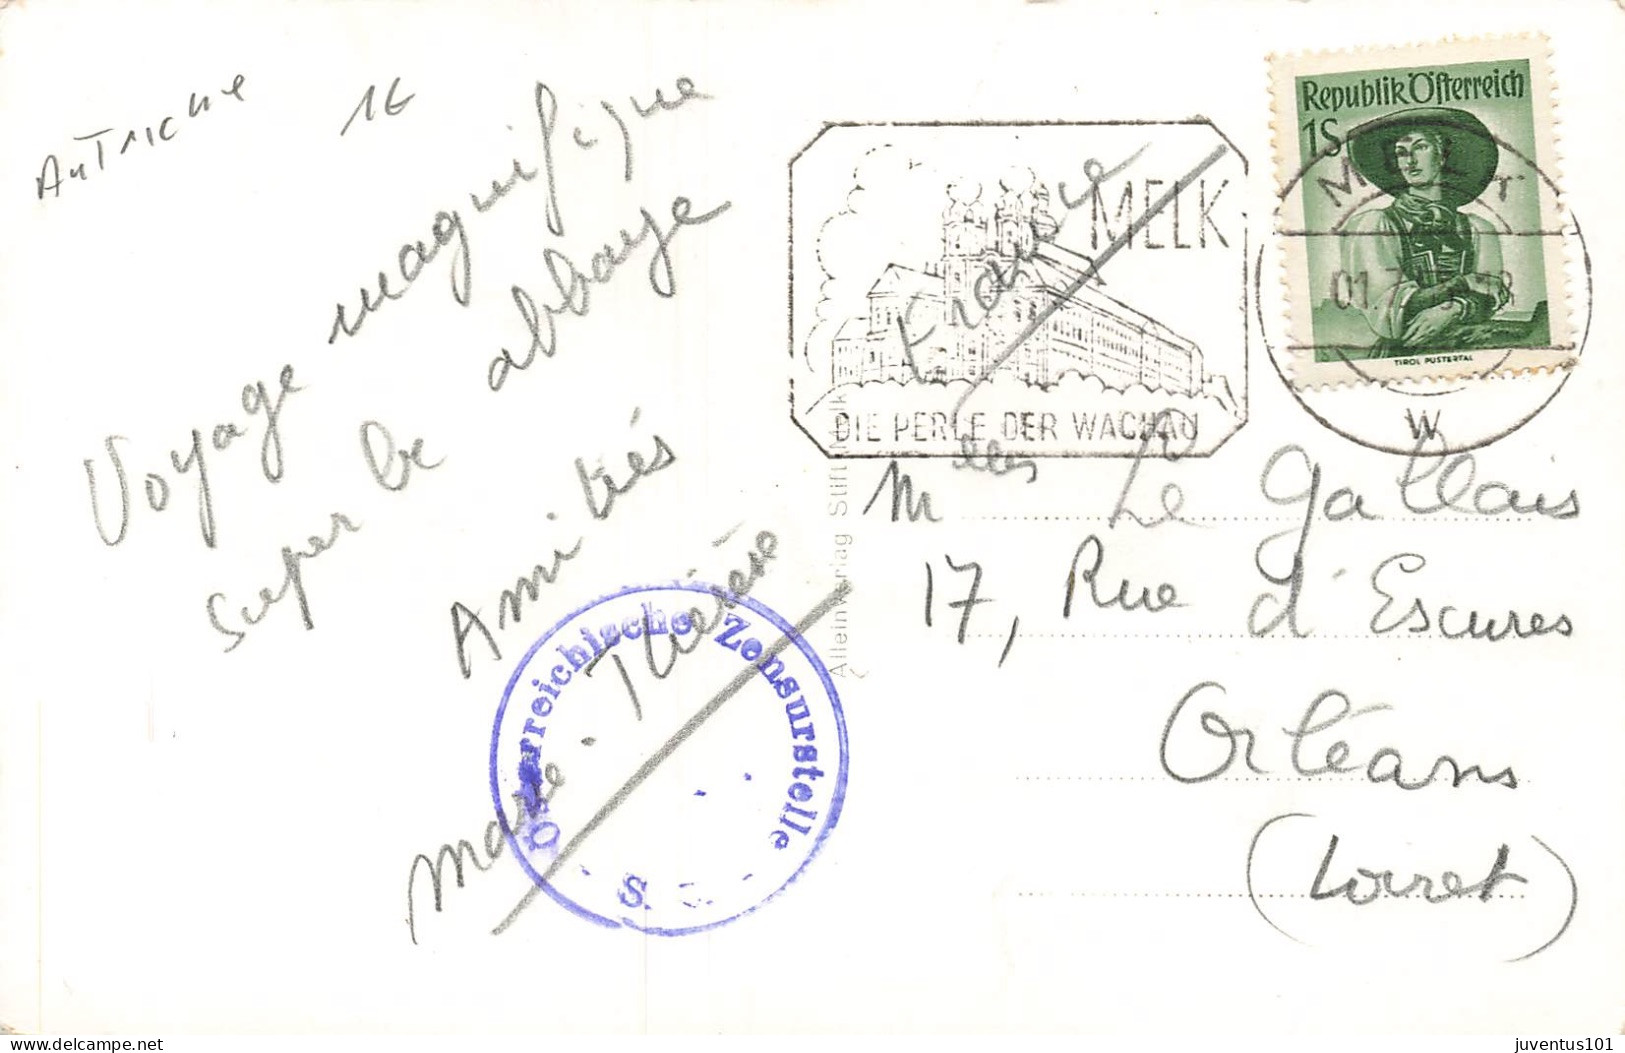 Autriche
1€
Voyage magnifique
superbe abbaye
Amitiés
Marie-Thérèse
Österreichische Zensurstelle
S
Alleinverlag Stift Melk
MELK
DIE PERLE DER WACHAU
Republik Österreich
1S
TIROL PUSTERTAL
MELK
W
France
Melles Le Gallais
17, Rue d'Escures
Orléans
(Loiret)
delcampe.net
juventus101